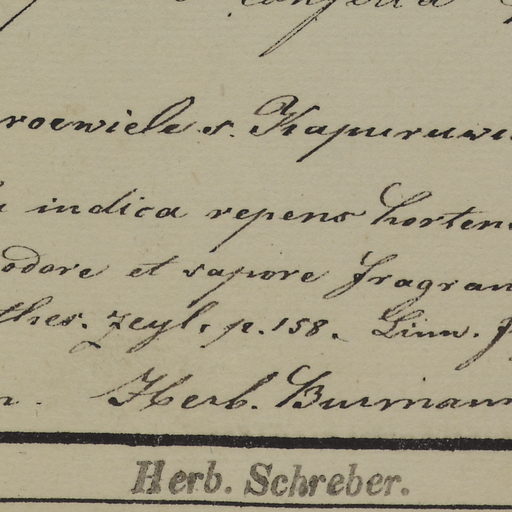 conferta
roewiele s. Kapuruwa
indica repens hortens
odore et sapore fragran
thes. zeyl. p. 158. Linn. f
Herb. Burmann
Herb. Schreber.